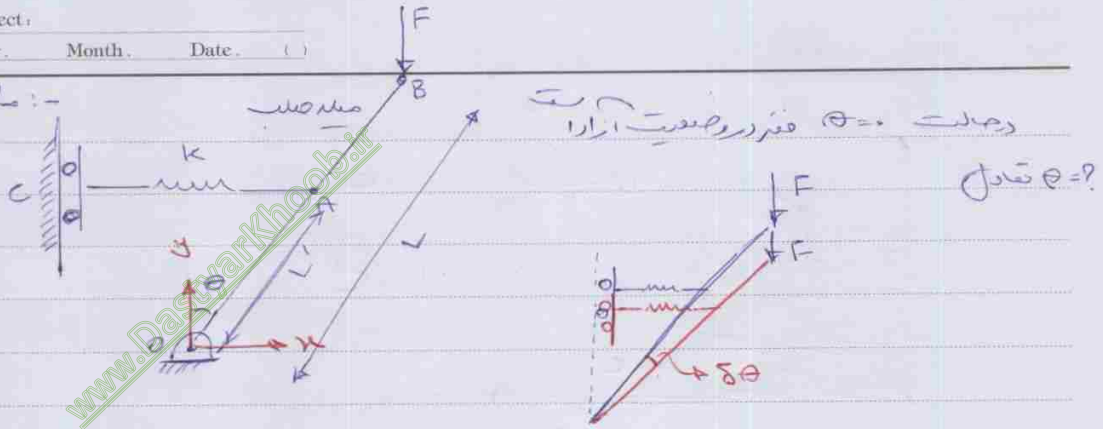 ect:
Month. Date. ( )
F
B
میله صلب
در حالت θ=0 فنر در وضعیت آزاد است
تعادل θ=?
k
C
A
L'
L
y
θ
O
x
F
F
δθ
www.DastyarKhoob.ir